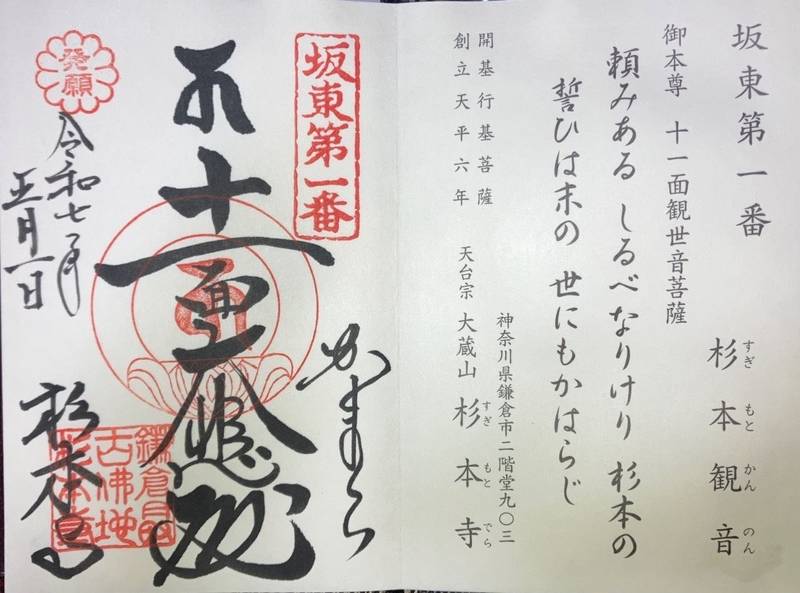 坂東第一番
杉本観音
すぎもとかんのん
御本尊 十一面観世音菩薩
頼みある しるべなりけり 杉本の
誓ひは末の 世にもかはらじ
開基行基菩薩
創立天平六年
神奈川県鎌倉市二階堂九〇三
天台宗 大蔵山 杉本寺
すぎもとでら
坂東第一番
かまくら
十一面大悲殿
発願
令和七年
五月一日
杉本寺